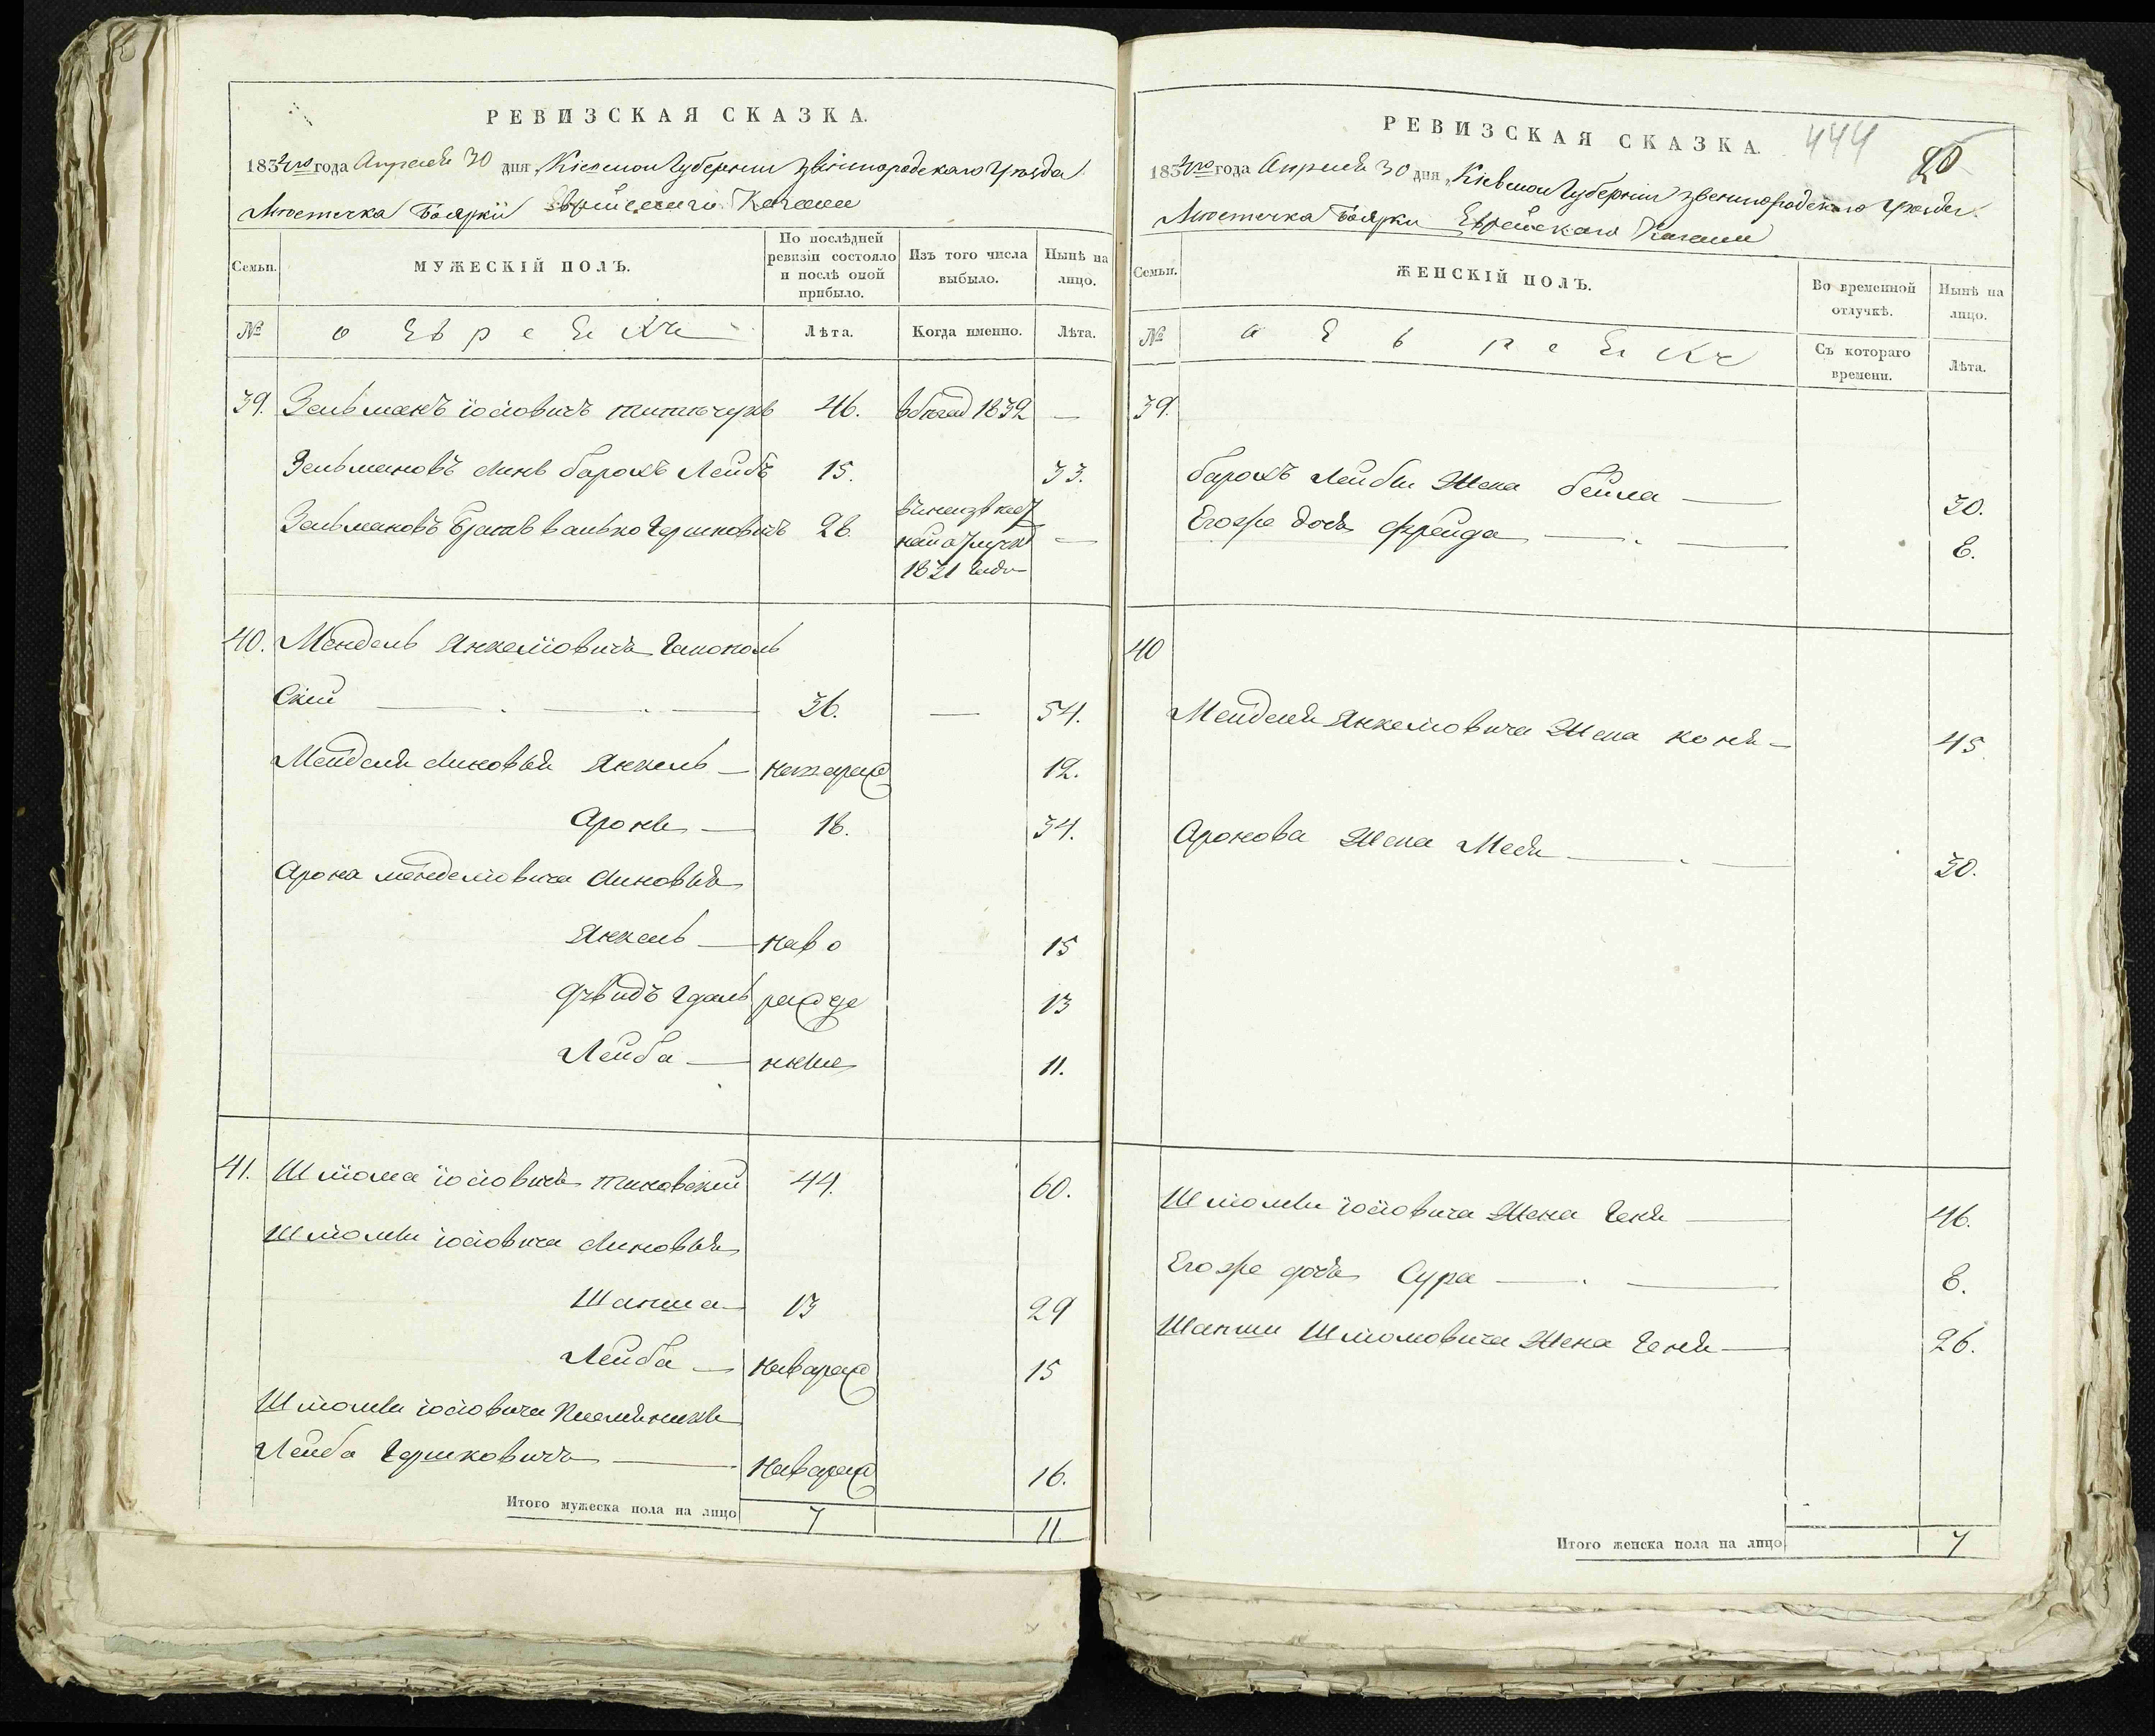 РЕВИЗСКАЯ СКАЗКА.
1834го года Апреля 30 дня, Кіевской Губерніи Звенигородскаго Уезда
Местечка Боярки Еврейскаго Кагала
Семьи.
МУЖЕСКІЙ ПОЛЪ.
По послѣдней ревизіи состояло и послѣ оной прибыло.
Изъ того числа выбыло.
Нынѣ на лицо.
№
о Евреяхъ
Лѣта.
Когда именно.
Лѣта.
39. Зельманъ Іосіовичъ 46. 1832 —
Зельмановъ сынъ Борохъ Лейбъ 15. 33.
Зельмановъ братъ Волько Гершковичъ 26. —
1831 года
40. Мендель Янкеліовичъ Гапополь
скій 36. — 54.
Менделя сыновья Янкель — 12.
Аронъ — 18. 34.
Арона Менделіовича сыновья
Янкель — ново 15
Дувидъ Гдаль рожде 13
Лейба — нные 11.
41. Шліома Іосіовичъ Тиновскій 44. 60.
Шліомы Іосіовича сыновья
Шапша 13 29
Лейба — Новорож 15
Шліомы Іосіовича Племянникъ
Лейба Гершковичъ — Новорож 16.
Итого мужеска пола на лицо 7 11
РЕВИЗСКАЯ СКАЗКА.
444
1834го года Апреля 30 дня, Кіевской Губерніи Звенигородскаго Уезда
Местечка Боярки Еврейскаго Кагала
Семьи.
ЖЕНСКІЙ ПОЛЪ.
Во временной отлучкѣ.
Нынѣ на лицо.
№
о Евреяхъ
Съ котораго времени.
Лѣта.
39.
Борохъ Лейбы Жена Бейла — 30.
Егоже дочь Фрейда — 8.
40
Менделя Янкеліовича Жена Хоня — 45.
Аронова Жена Медя — 30.
Шліомы Іосіовича Жена Геня — 46.
Егоже дочь Сура — 8.
Шапши Шліомовича Жена Геня — 26.
Итого женска пола на лицо 7